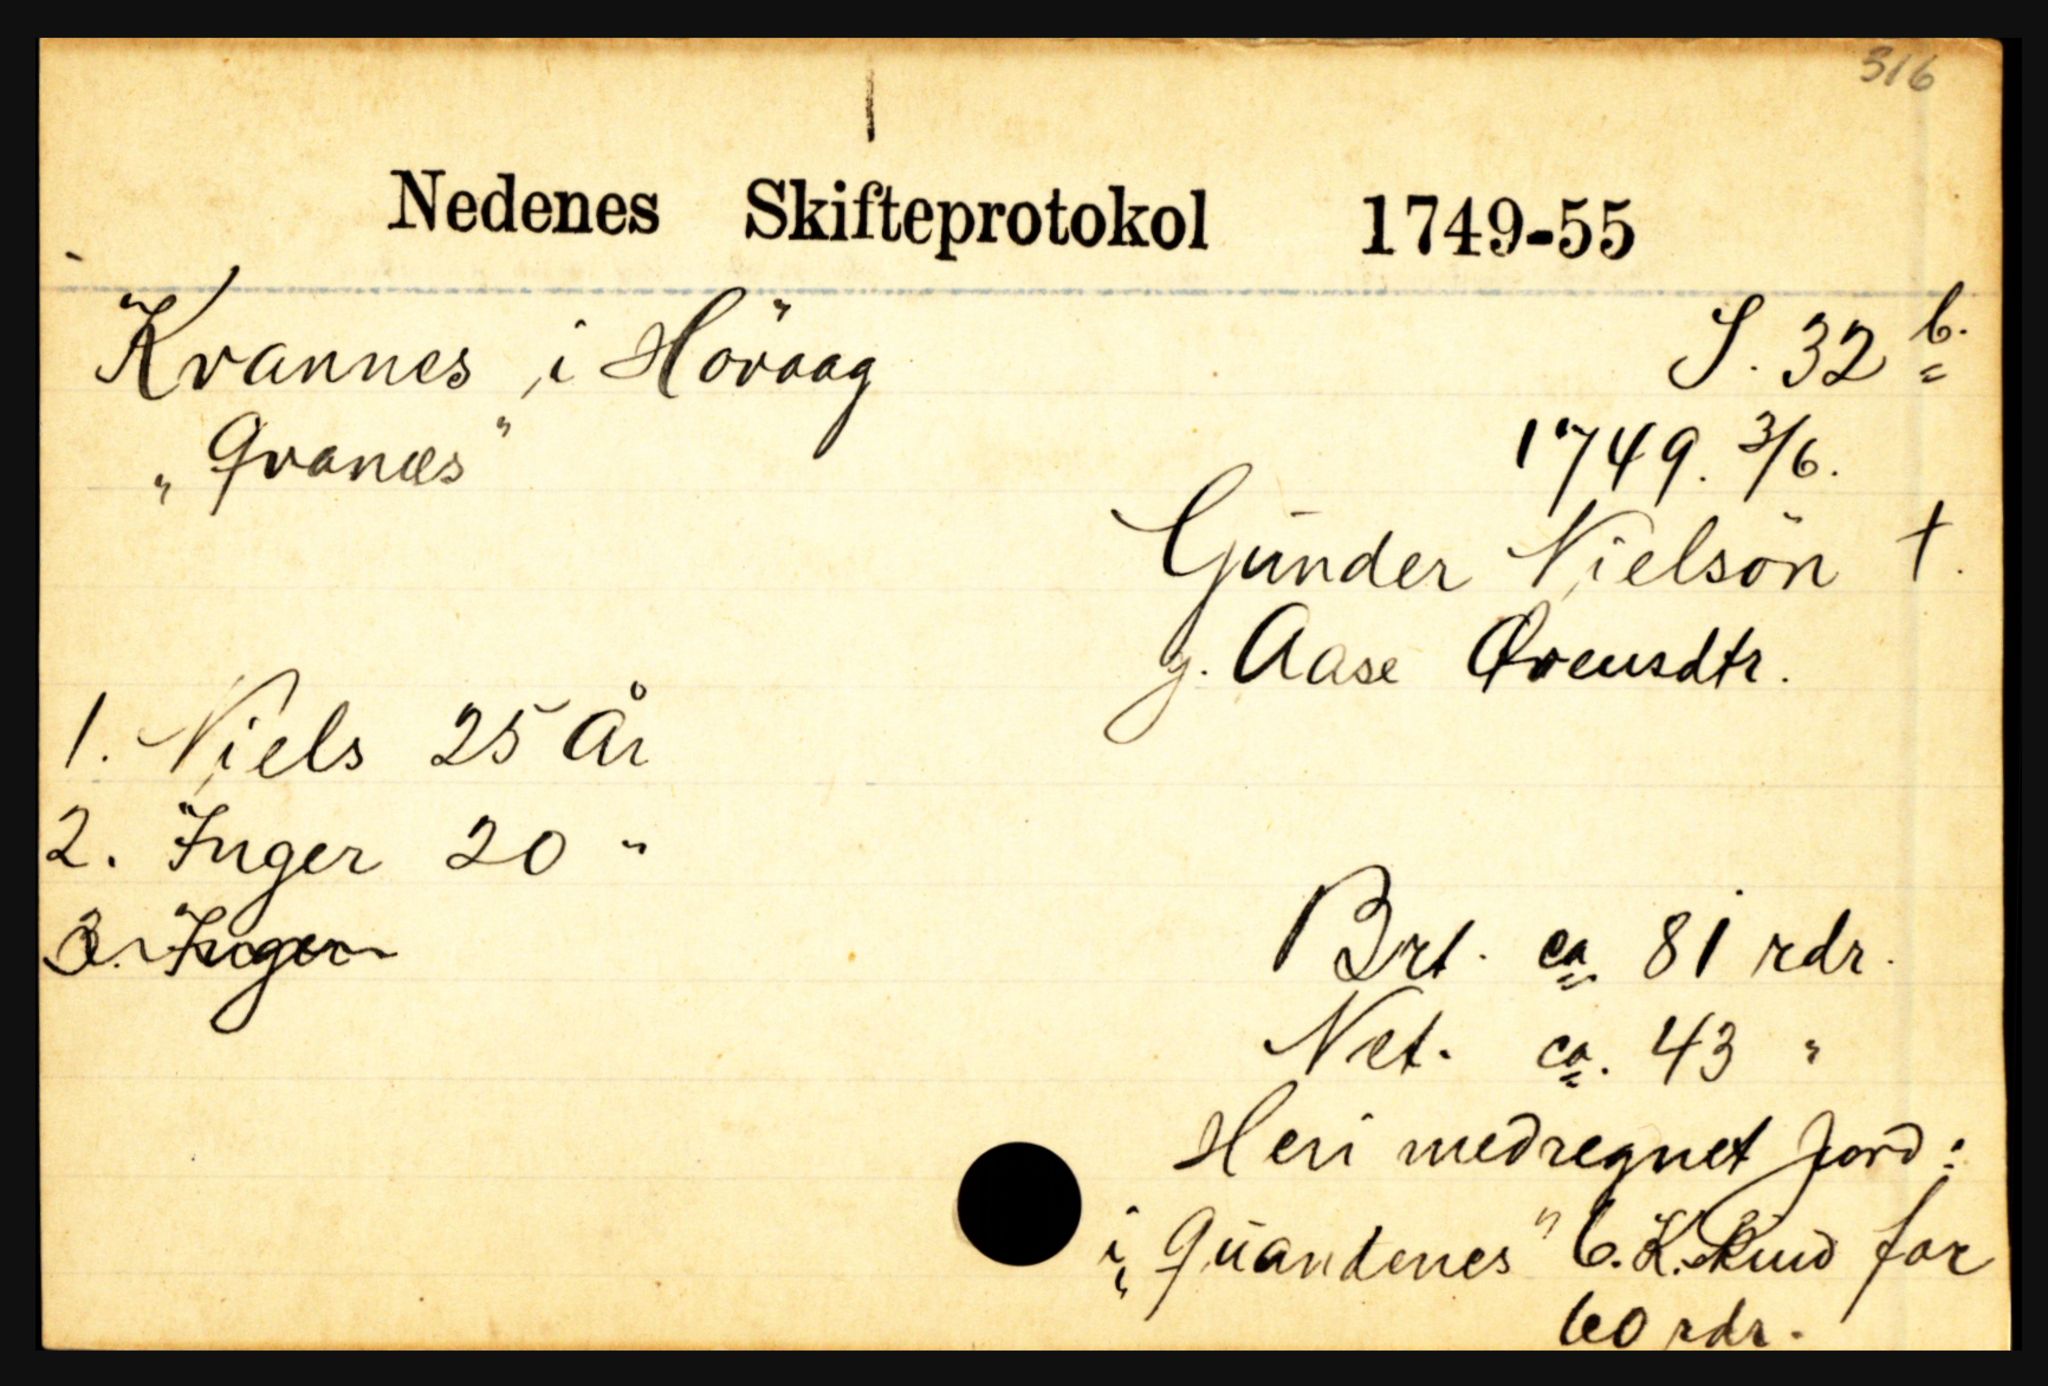 316
Nedenes Skifteprotokol 1749-55
Kvannes i Hövaag S. 32 b.
"Qvanæs" 1749. 3/6.
Gunder Nielsön †.
g. Aase Øvensdtr.
1. Niels 25 År
2. Inger 20 "
3. Inger
Brt. ca. 81 rdr.
Net. ca. 43 "
Heri medregnet jord:
i "Quandenes" 6. K. Skind for
60 rdr.